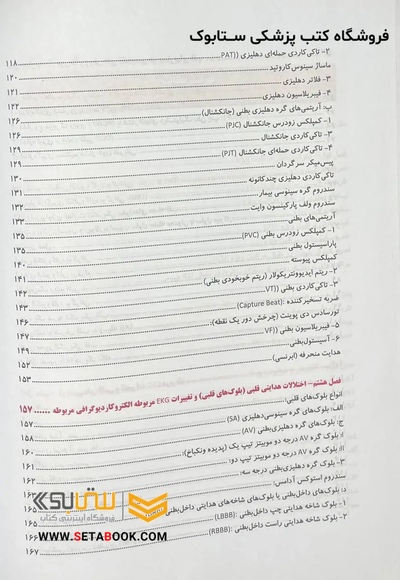 فروشگاه کتب پزشکی ستابوک
۲- تاکی‌کاردی حمله‌ای دهلیزی (PAT)) ۱۱۸
ماساژ سینوس کاروتید ۱۲۰
۳- فلاتر دهلیزی ۱۲۱
۴- فیبریلاسیون دهلیزی ۱۲۲
ب: آریتمی‌های گره دهلیزی بطنی (جانکشنال) ۱۲۶
۱- کمپلکس زودرس جانکشنال (PJC) ۱۲۶
۳- تاکی‌کاردی جانکشنال ۱۲۹
۴- تاکی‌کاردی حمله‌ای جانکشنال (PJT) ۱۲۹
پیس‌میکر سرگردان ۱۳۰
تاکی‌کاردی دهلیزی چندکانونه ۱۳۱
سندروم گره سینوسی بیمار ۱۳۲
سندروم ولف پارکینسون وایت ۱۳۳
آریتمی‌های بطنی ۱۳۵
۱- کمپلکس زودرس بطنی (PVC) ۱۳۵
پاراسیستول بطنی ۱۴۰
کمپلکس پیوسته ۱۴۱
۲- ریتم ایدیوونتریکولار (ریتم خودبخودی بطنی) ۱۴۲
۳- تاکی‌کاردی بطنی (VT) ۱۴۳
ضربه تسخیرکننده (Capture Beat): ۱۴۶
تورسادس دی پوینت (چرخش دور یک نقطه): ۱۴۷
۵- فیبریلاسیون بطنی (VF) ۱۴۹
۶- آسیستول‌بطنی ۱۵۲
هدایت منحرفه (ابرسی) ۱۵۳
فصل هشتم- اختلالات هدایتی قلبی (بلوک‌های قلبی) و تغییرات EKG مربوطه الکتروکاردیوگرافی مربوطه ...... ۱۵۷
انواع بلوک‌های قلبی: ۱۵۷
الف: بلوک‌های گره سینوسی‌دهلیزی (SA) ۱۵۸
ج: بلوک‌های گره دهلیزی‌بطنی (AV)
I: بلوک گره AV درجه دو موبیتز تیپ یک (پدیده ونکباخ): ۱۶۰
II: بلوک گره AV درجه دو موبیتز تیپ دو:
۳- بلوک گره دهلیزی‌بطنی درجه سه: ۱۶۲
سندروم استوکس آدامس:
د: بلوک‌های داخل‌بطنی یا بلوک‌های شاخه‌های هدایتی داخل‌بطنی ۱۶۵
۱- بلوک شاخه هدایتی چپ داخل‌بطنی (LBBB): ۱۶۵
۲- بلوک شاخه هدایتی راست داخل‌بطنی (RBBB): ۱۶۶
۱۶۷
ستابوک
فروشگاه اینترنتی کتاب
WWW.SETABOOK.COM